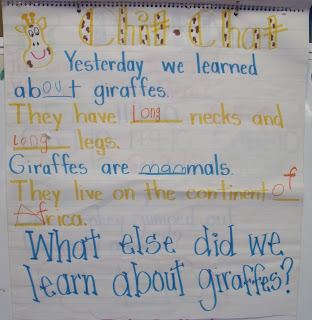 Chit Chat
Yesterday we learned
about giraffes.
They have long necks and
long legs.
Giraffes are mammals.
They live on the continent of
Africa.
What else did we
learn about giraffes?